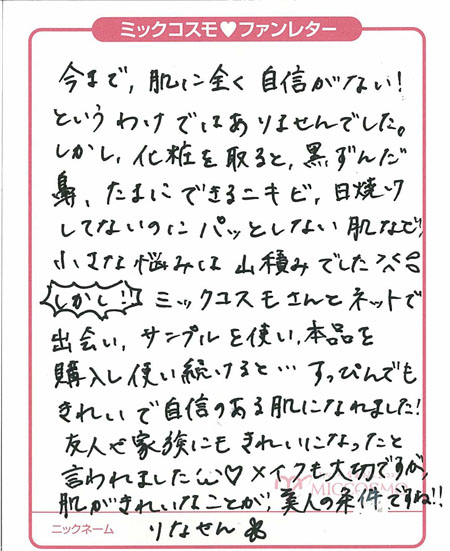 ミックコスモ♥ファンレター
今まで,肌に全く自信がない!
というわけではありませんでした。
しかし,化粧を取ると,黒ずんだ
鼻、たまにできるニキビ,日焼け
してないのにパッとしない肌など,
小さな悩みは山積みでした
しかし! ミックコスモさんとネットで
出会い,サンプルを使い,本品を
購入し使い続けると…すっぴんでも
きれいで自信のある肌になれました!
友人や家族にもきれいになったと
言われました♡メイクも大切ですが,
肌がきれいなことが,美人の条件ですね!!
MICCOSMO
ニックネーム りなせん